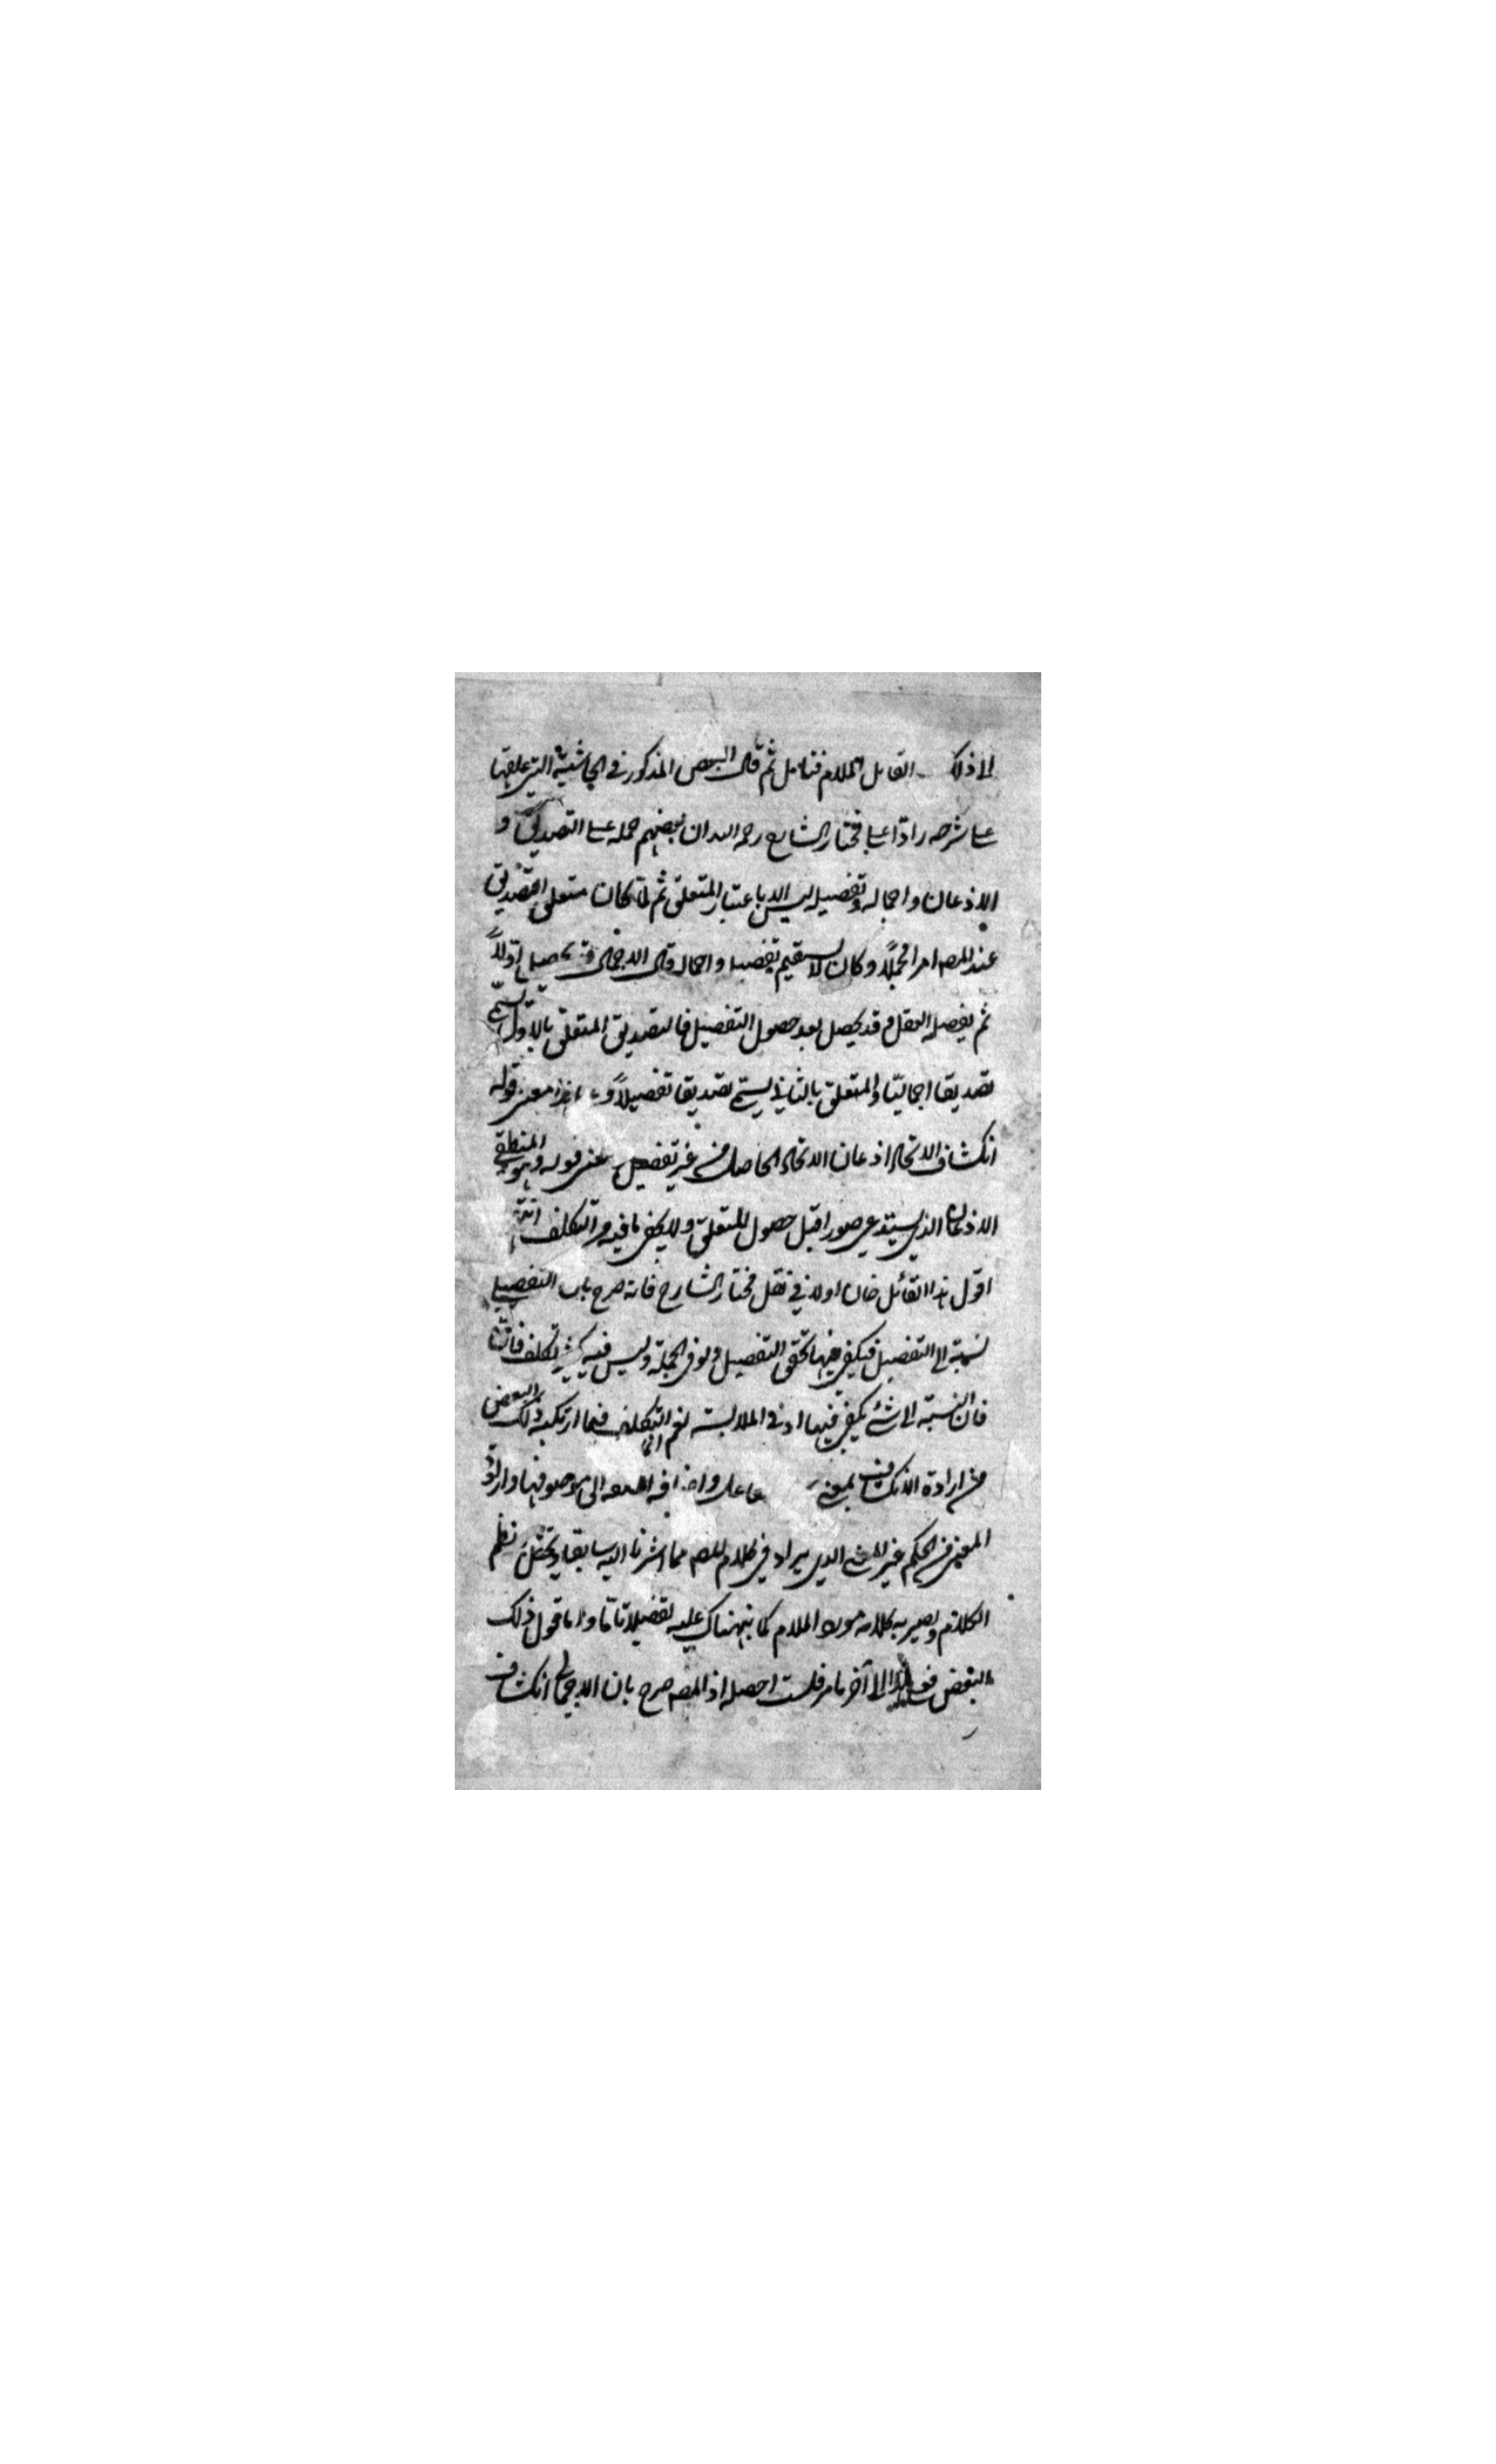 الى ذلك القائل الملام فتامل ثم قال البعض المذكور في الحاشية التي علقها
على شرحه رادا على مختار الشارح رحمه الله ان بعضهم حمله على التصديق و
الاذعان واجماله وتفصيله ليس الا باعتبار المتعلق ثم لما كان متعلق التصديق
عند المص امرا مجملا وكان لا يستقيم تفصيله واجماله قال الاجمالي قد يحصل اولا
ثم يفصله العقل وقد يحصل بعد حصول التفصيل فالتصديق المتعلق بالاول يسمى
تصديقا اجماليا والمتعلق بالثاني يسمى تصديقا تفصيلا معنى قوله
انكشاف الاتحاد اذعان الاتحاد الحاصل من غير تفصيل معنى قوله وهو المنطقي
الاذعان الذي يستدعي صورا قبل حصول المتعلق ولا يخفى ما فيه من التكلف انتهى
اقول هذا القائل خان اولا في نقل مختار الشارح فانه صرح بان التفصيلي
نسبة الى التفصيل فيكفي فيها تحقق التفصيل ولو في الجملة وليس فيه كثير تكلف
فان النسبة الى شئ يكفي فيها ادنى الملابسة نعم التكلف انما فيما ارتكبه ذلك البعض
من ارادة الانكشاف بمعنى واضافة الصفة الى موصوفها وارادة
المعنى من الحكم غير المعنى الذي يراد في كلام المص مما اشرنا اليه سابقا ويختل نظم
الكلام ويصير به كلامه مورد الملام كما نبهناك عليه تفصيلا تاما واما قول ذلك
البعض الى آخر ما مر فلست احصله اذ المص صرح بان الاجمالي انكشاف